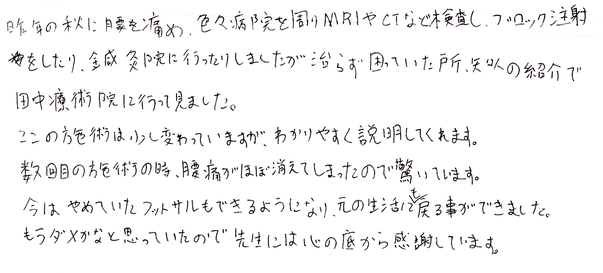 昨年の秋に腰を痛め、色々病院を周りMRIやCTなど検査し、ブロック注射
をしたり、金咸灸院に行ったりしましたが治らず困っていた所、知人の紹介で
田中療術院に行って見ました。
ここの施術は少し変わっていますが、わかりやすく説明してくれます。
数回目の施術の時、腰痛がほぼ消えてしまったので驚いています。
今はやめていたフットサルもできるようになり、元の生活にも戻る事ができました。
もうダメかなと思っていたので先生には心の底から感謝しています。